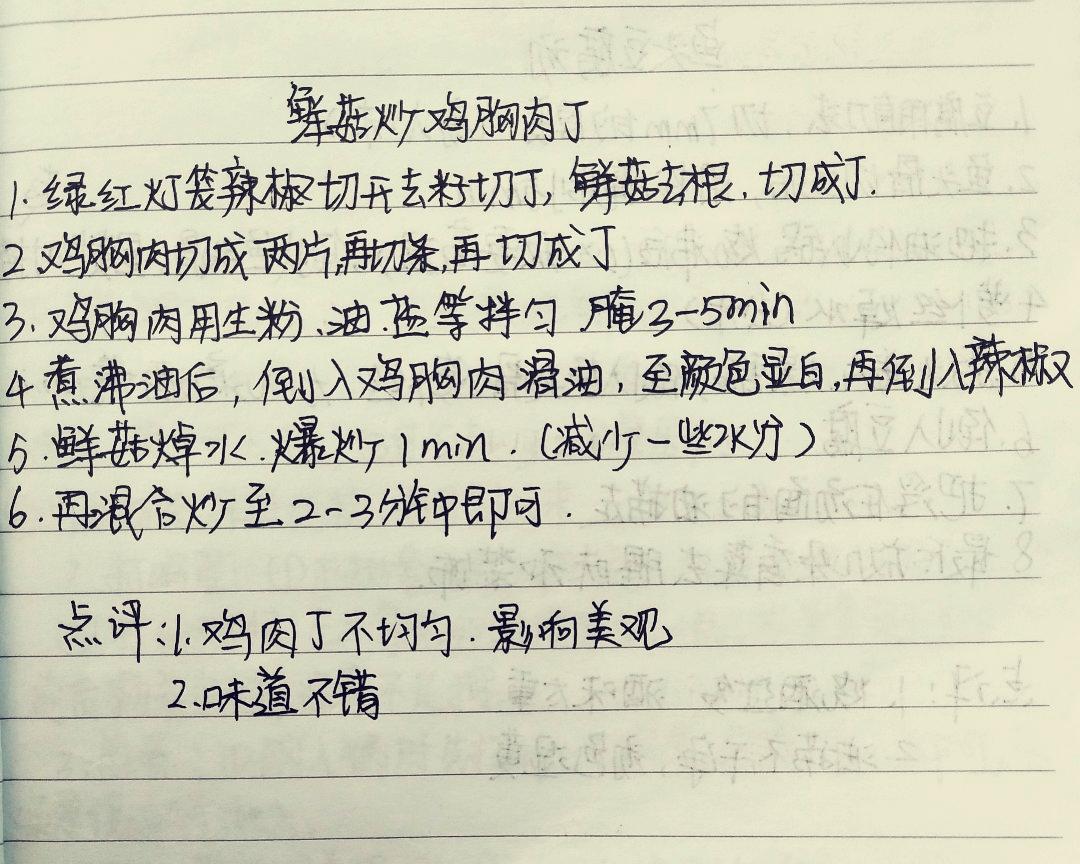 鲜菇炒鸡胸肉丁
1. 绿红灯笼辣椒切开去籽切丁, 鲜菇去根. 切成丁.
2. 鸡胸肉切成两片,再切条,再切成丁
3. 鸡胸肉用生粉.油.盐等拌匀 腌3-5min
4 煮沸油后, 倒入鸡胸肉滑油, 至颜色显白,再倒入辣椒
5. 鲜菇焯水.爆炒1min. (减少一些水分)
6. 再混合炒至2-3分钟即可.
点评:1.鸡肉丁不均匀.影响美观
2.味道不错